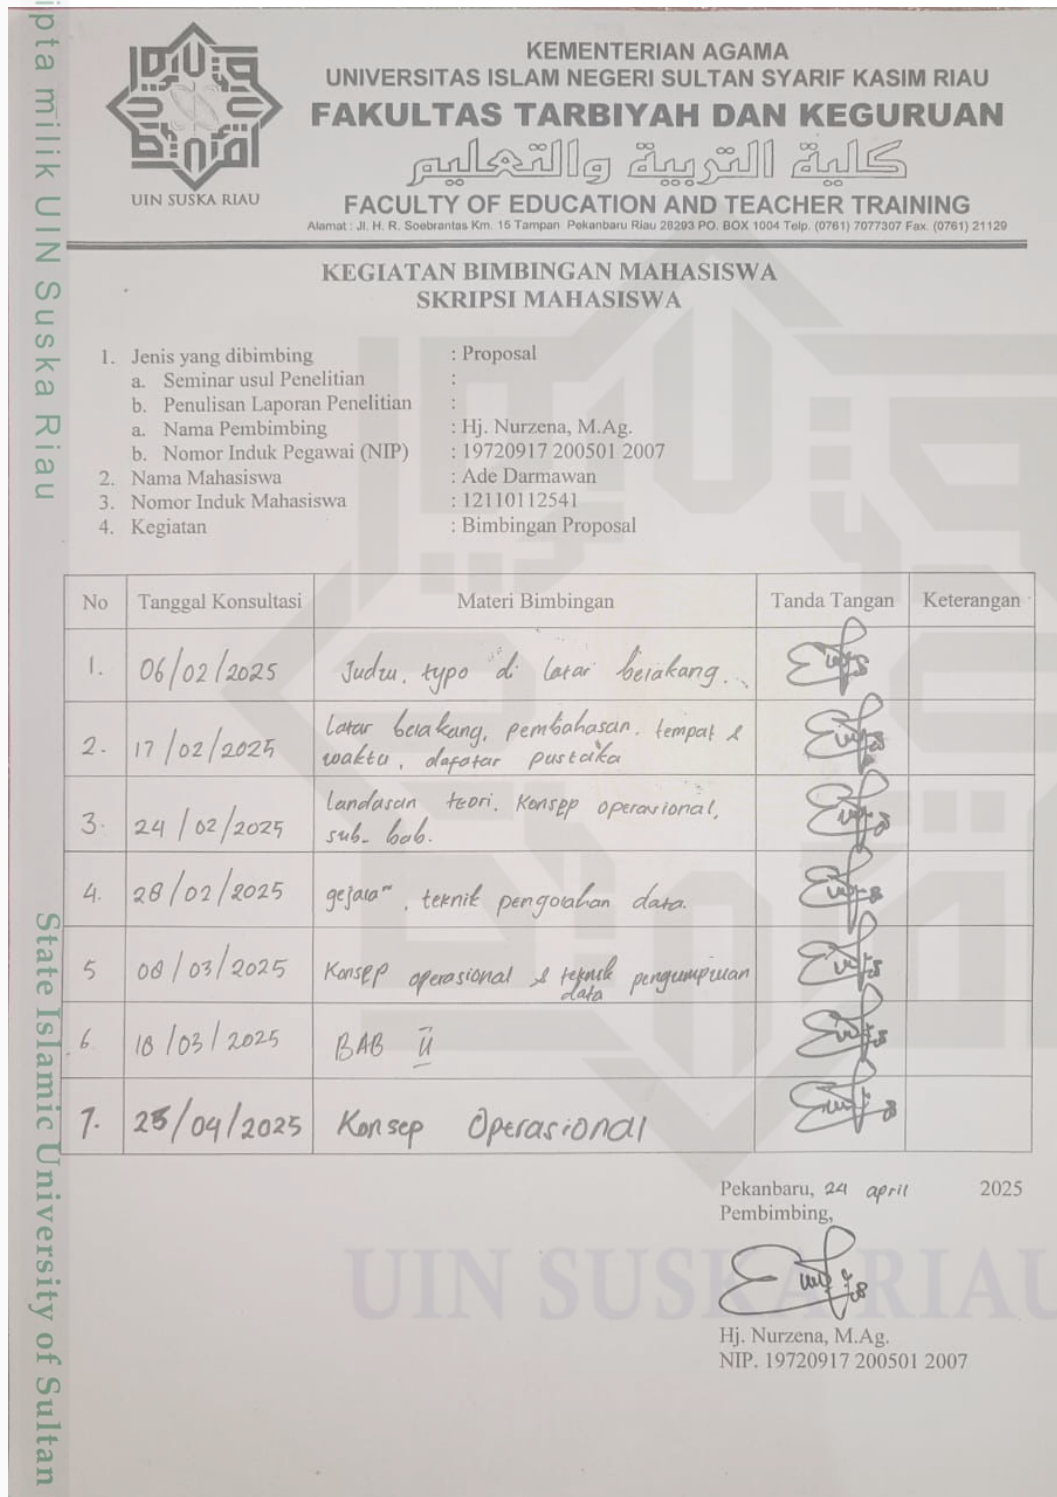 ipta milik UIN Suska Riau
State Islamic University of Sultan
UIN SUSKA RIAU
KEMENTERIAN AGAMA
UNIVERSITAS ISLAM NEGERI SULTAN SYARIF KASIM RIAU
FAKULTAS TARBIYAH DAN KEGURUAN
كلية التربية والتعليم
FACULTY OF EDUCATION AND TEACHER TRAINING
Alamat : Jl. H. R. Soebrantas Km. 15 Tampan Pekanbaru Riau 28293 PO. BOX 1004 Telp. (0761) 7077307 Fax. (0761) 21129
KEGIATAN BIMBINGAN MAHASISWA
SKRIPSI MAHASISWA
1. Jenis yang dibimbing : Proposal
a. Seminar usul Penelitian :
b. Penulisan Laporan Penelitian :
a. Nama Pembimbing : Hj. Nurzena, M.Ag.
b. Nomor Induk Pegawai (NIP) : 19720917 200501 2007
2. Nama Mahasiswa : Ade Darmawan
3. Nomor Induk Mahasiswa : 12110112541
4. Kegiatan : Bimbingan Proposal
No Tanggal Konsultasi Materi Bimbingan Tanda Tangan Keterangan
1. 06/02/2025 Judul, typo di latar belakang.
2. 17/02/2025 latar belakang, pembahasan, tempat &
waktu, dafatar pustaka
3. 24/02/2025 landasan teori, Konsep operasional,
sub-bab.
4. 28/02/2025 gejala", teknik pengolahan data.
5 08/03/2025 Konsep operasional & teknik pengumpulan
data
6. 18/03/2025 BAB II
7. /04/2025 Konsep Operasional
Pekanbaru, 24 april 2025
Pembimbing,
UIN SUSKA RIAU
Hj. Nurzena, M.Ag.
NIP. 19720917 200501 2007